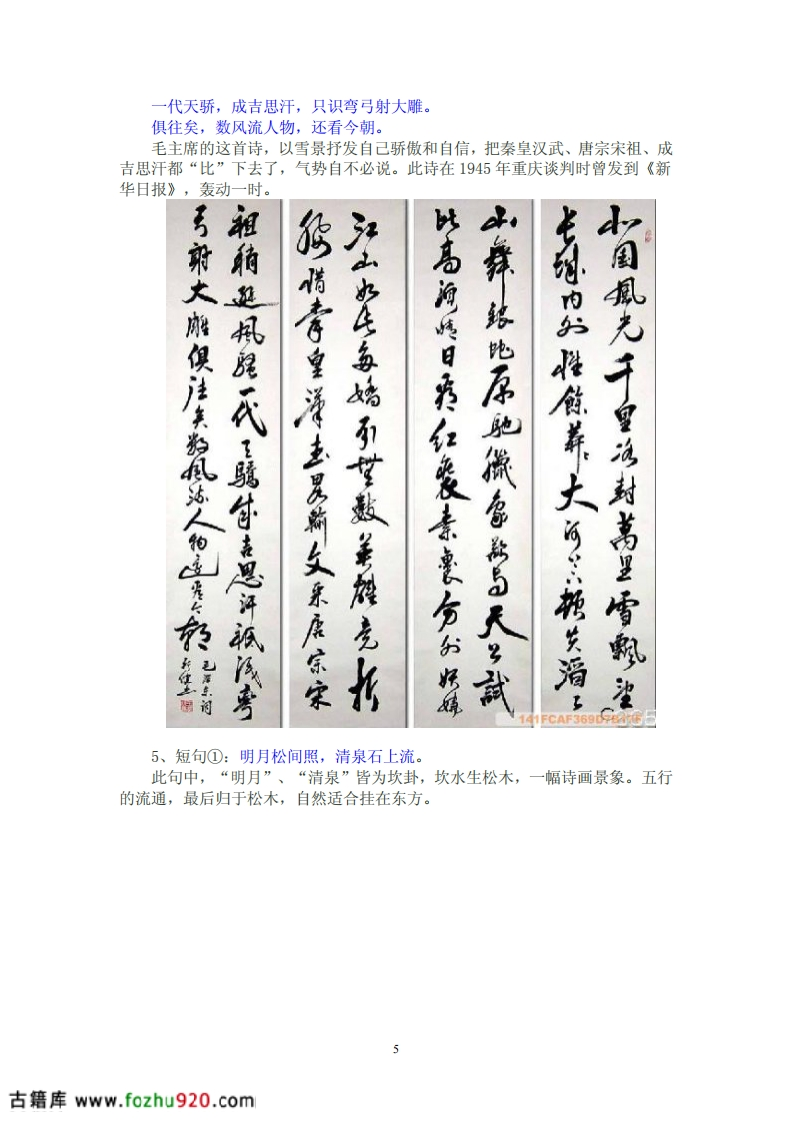 一代天骄，成吉思汗，只识弯弓射大雕。
俱往矣，数风流人物，还看今朝。
毛主席的这首诗，以雪景抒发自己骄傲和自信，把秦皇汉武、唐宗宋祖、成
吉思汗都“比”下去了，气势自不必说。此诗在 1945 年重庆谈判时曾发到《新
华日报》，轰动一时。
北国風光千里冰封萬里雪飄望
长城内外惟餘莽〻大河上下頓失滔〻
山舞銀蛇原馳蠟象欲与天公試
比高須晴日看红裝素裹分外妖嬈
江山如此多嬌引無數英雄竞折
腰惜秦皇漢武畧輸文采唐宗宋
祖稍遜風騷一代天驕成吉思汗祇識彎
弓射大雕俱往矣数風流人物還看今朝
毛泽东词
141FCAF369D7B11F
5、短句①：明月松间照，清泉石上流。
此句中，“明月”、“清泉”皆为坎卦，坎水生松木，一幅诗画景象。五行
的流通，最后归于松木，自然适合挂在东方。
5
古籍库 www.fozhu920.com